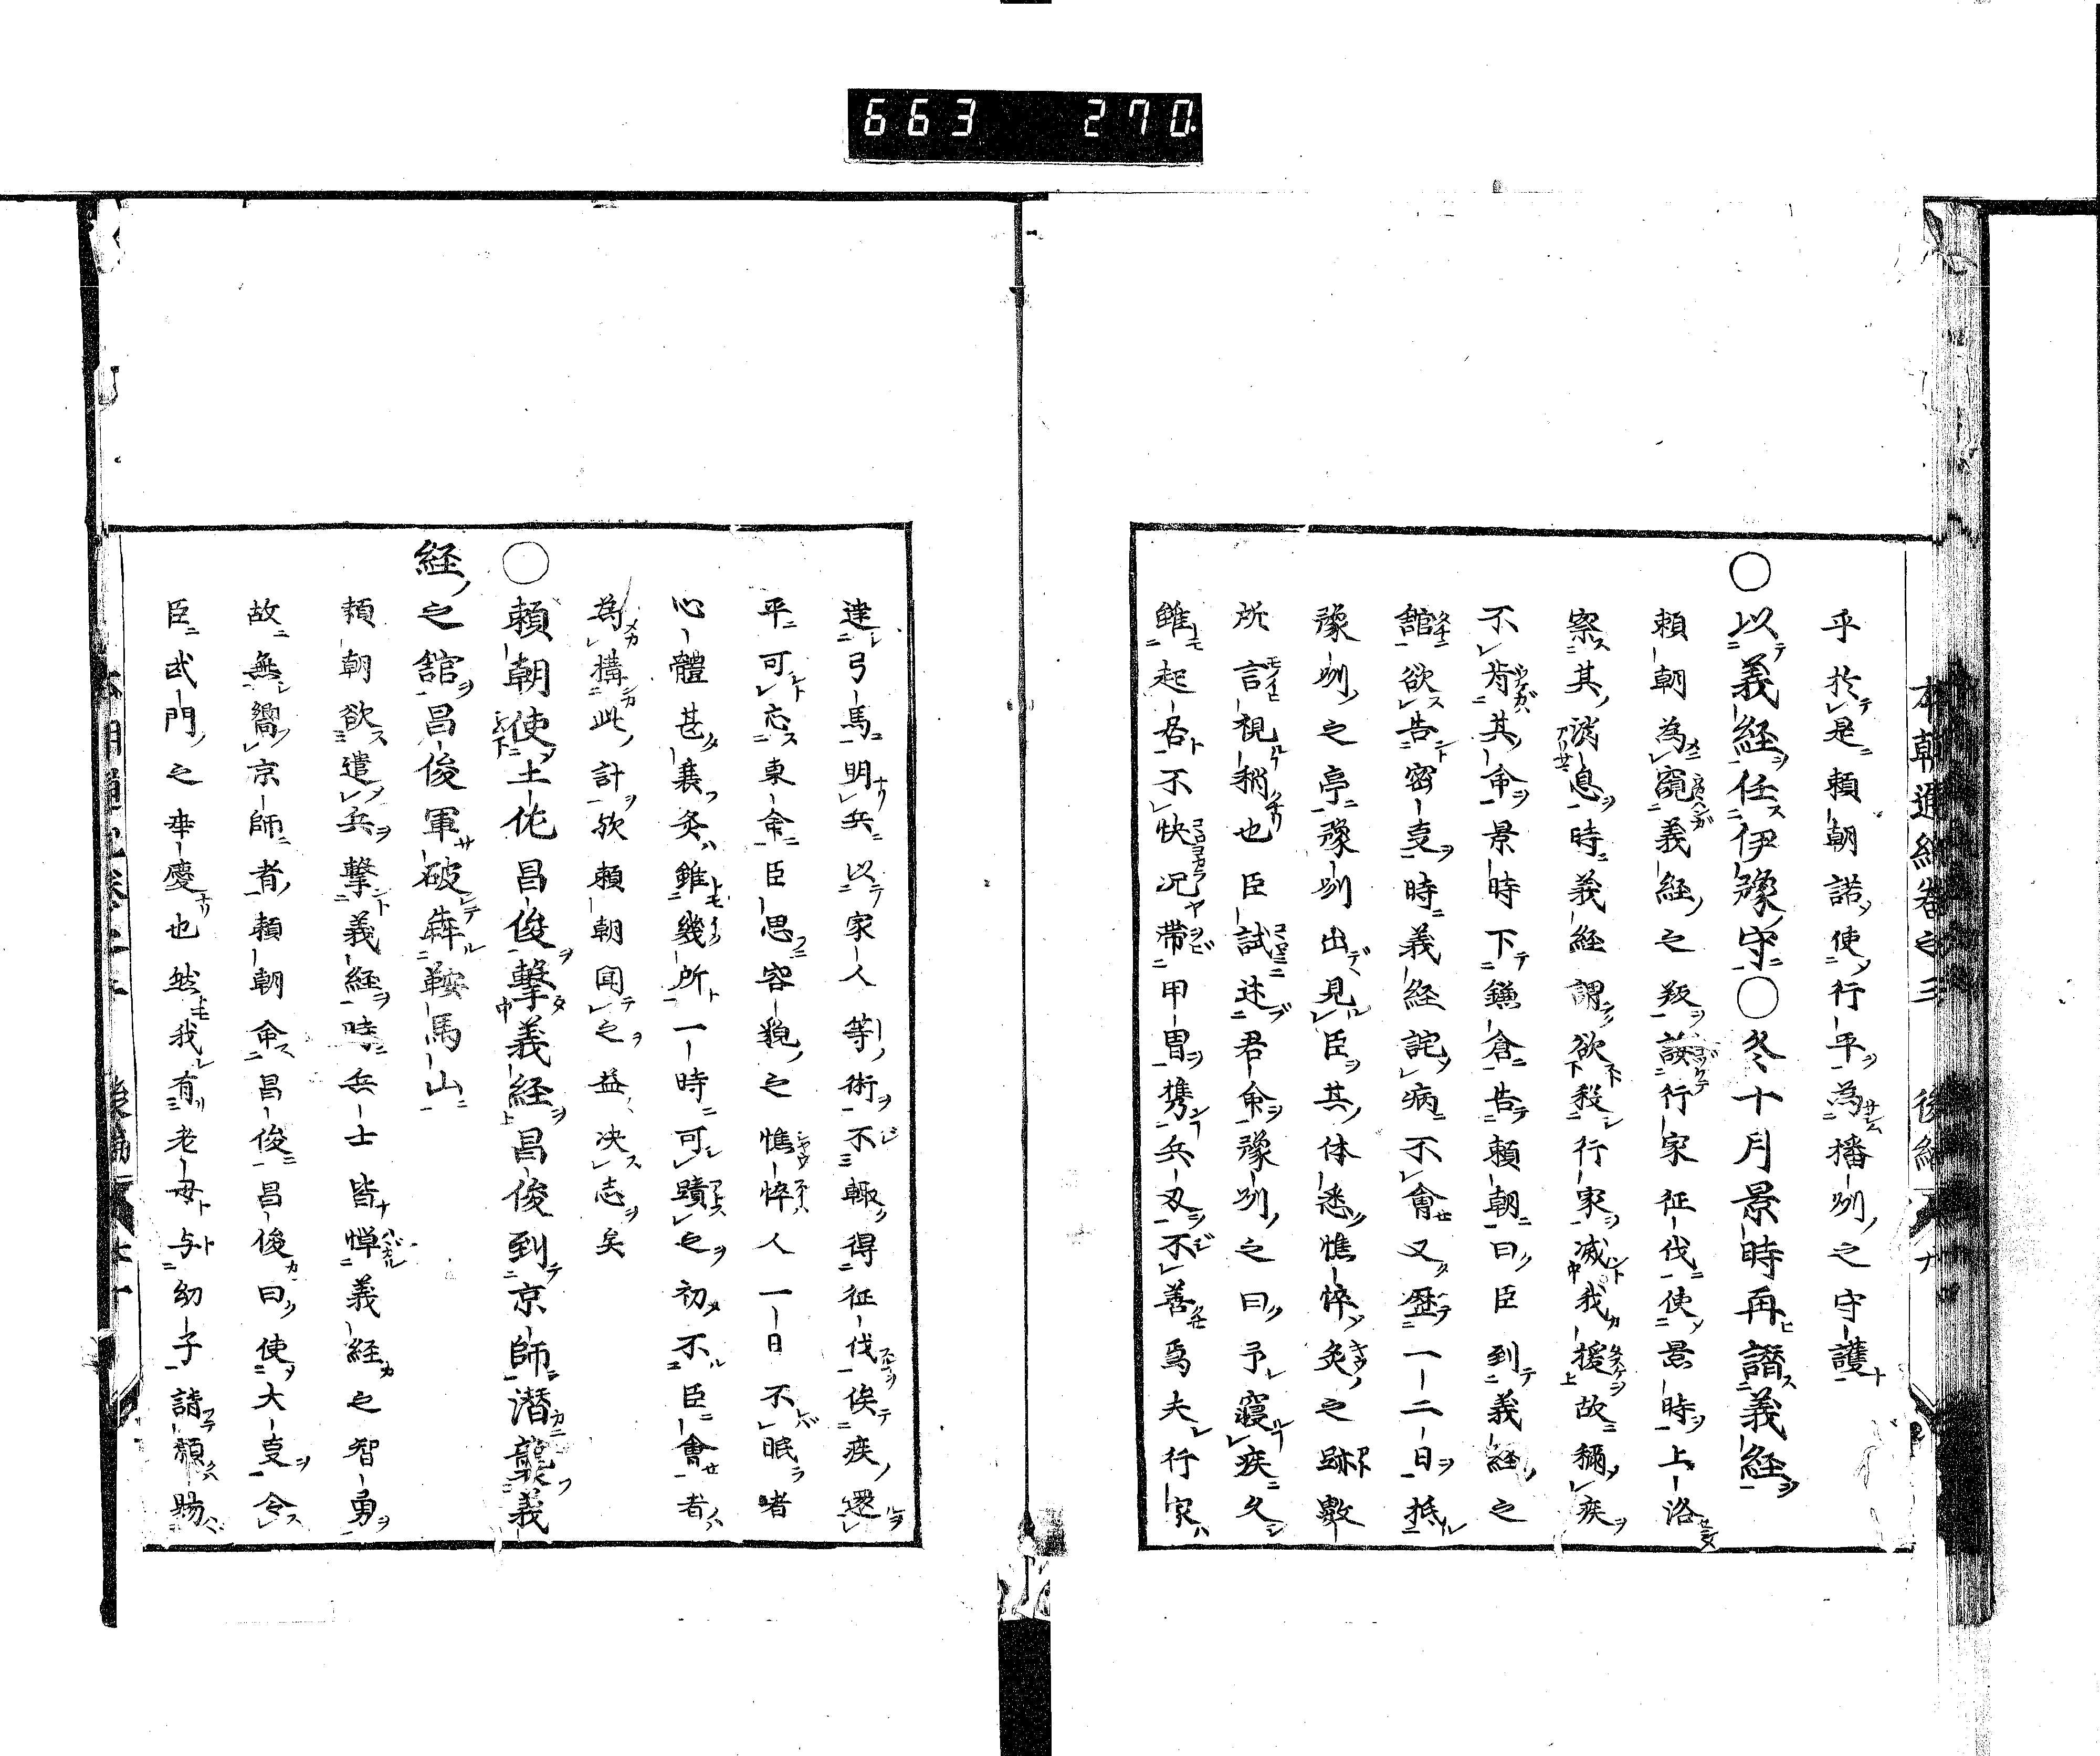 663 270
本朝通紀巻之三 後編
乎於是頼朝諾使行平為播州之守護
○以義経任伊豫守○冬十月景時再譖義経
頼朝為窺義経之叛議行家征伐使景時上洛
察其消息時義経謂欲殺行家滅我援故稱疾
不肯其命景時下鎌倉告頼朝曰臣到義経之
舘欲告密叓時義経詫病不會又歴一二日抵
豫州之亭豫州出見臣其体悉憔悴灸之跡數
所言視稍也臣試述君命豫州之曰予寝疾久
雖起居不快况帯甲冑携兵刄不善焉夫行家
達弓馬明兵以家人等術不輙得征伐俟疾還
平可忘東命臣思容貌之憔悴人一日不眠者
心體甚衰灸雖幾所一時可蹟之初不臣會者
為構此計欤頼朝聞之益决志矣
○頼朝使土佐昌俊撃義経昌俊到京師潜襲義
経之舘昌俊軍破奔鞍馬山
頼朝欲遣兵撃義経時兵士皆憚義経之智勇
故無嚮京師者頼朝命昌俊昌俊曰使大叓令
臣武門之幸慶也然我有老母与幼子請願賜